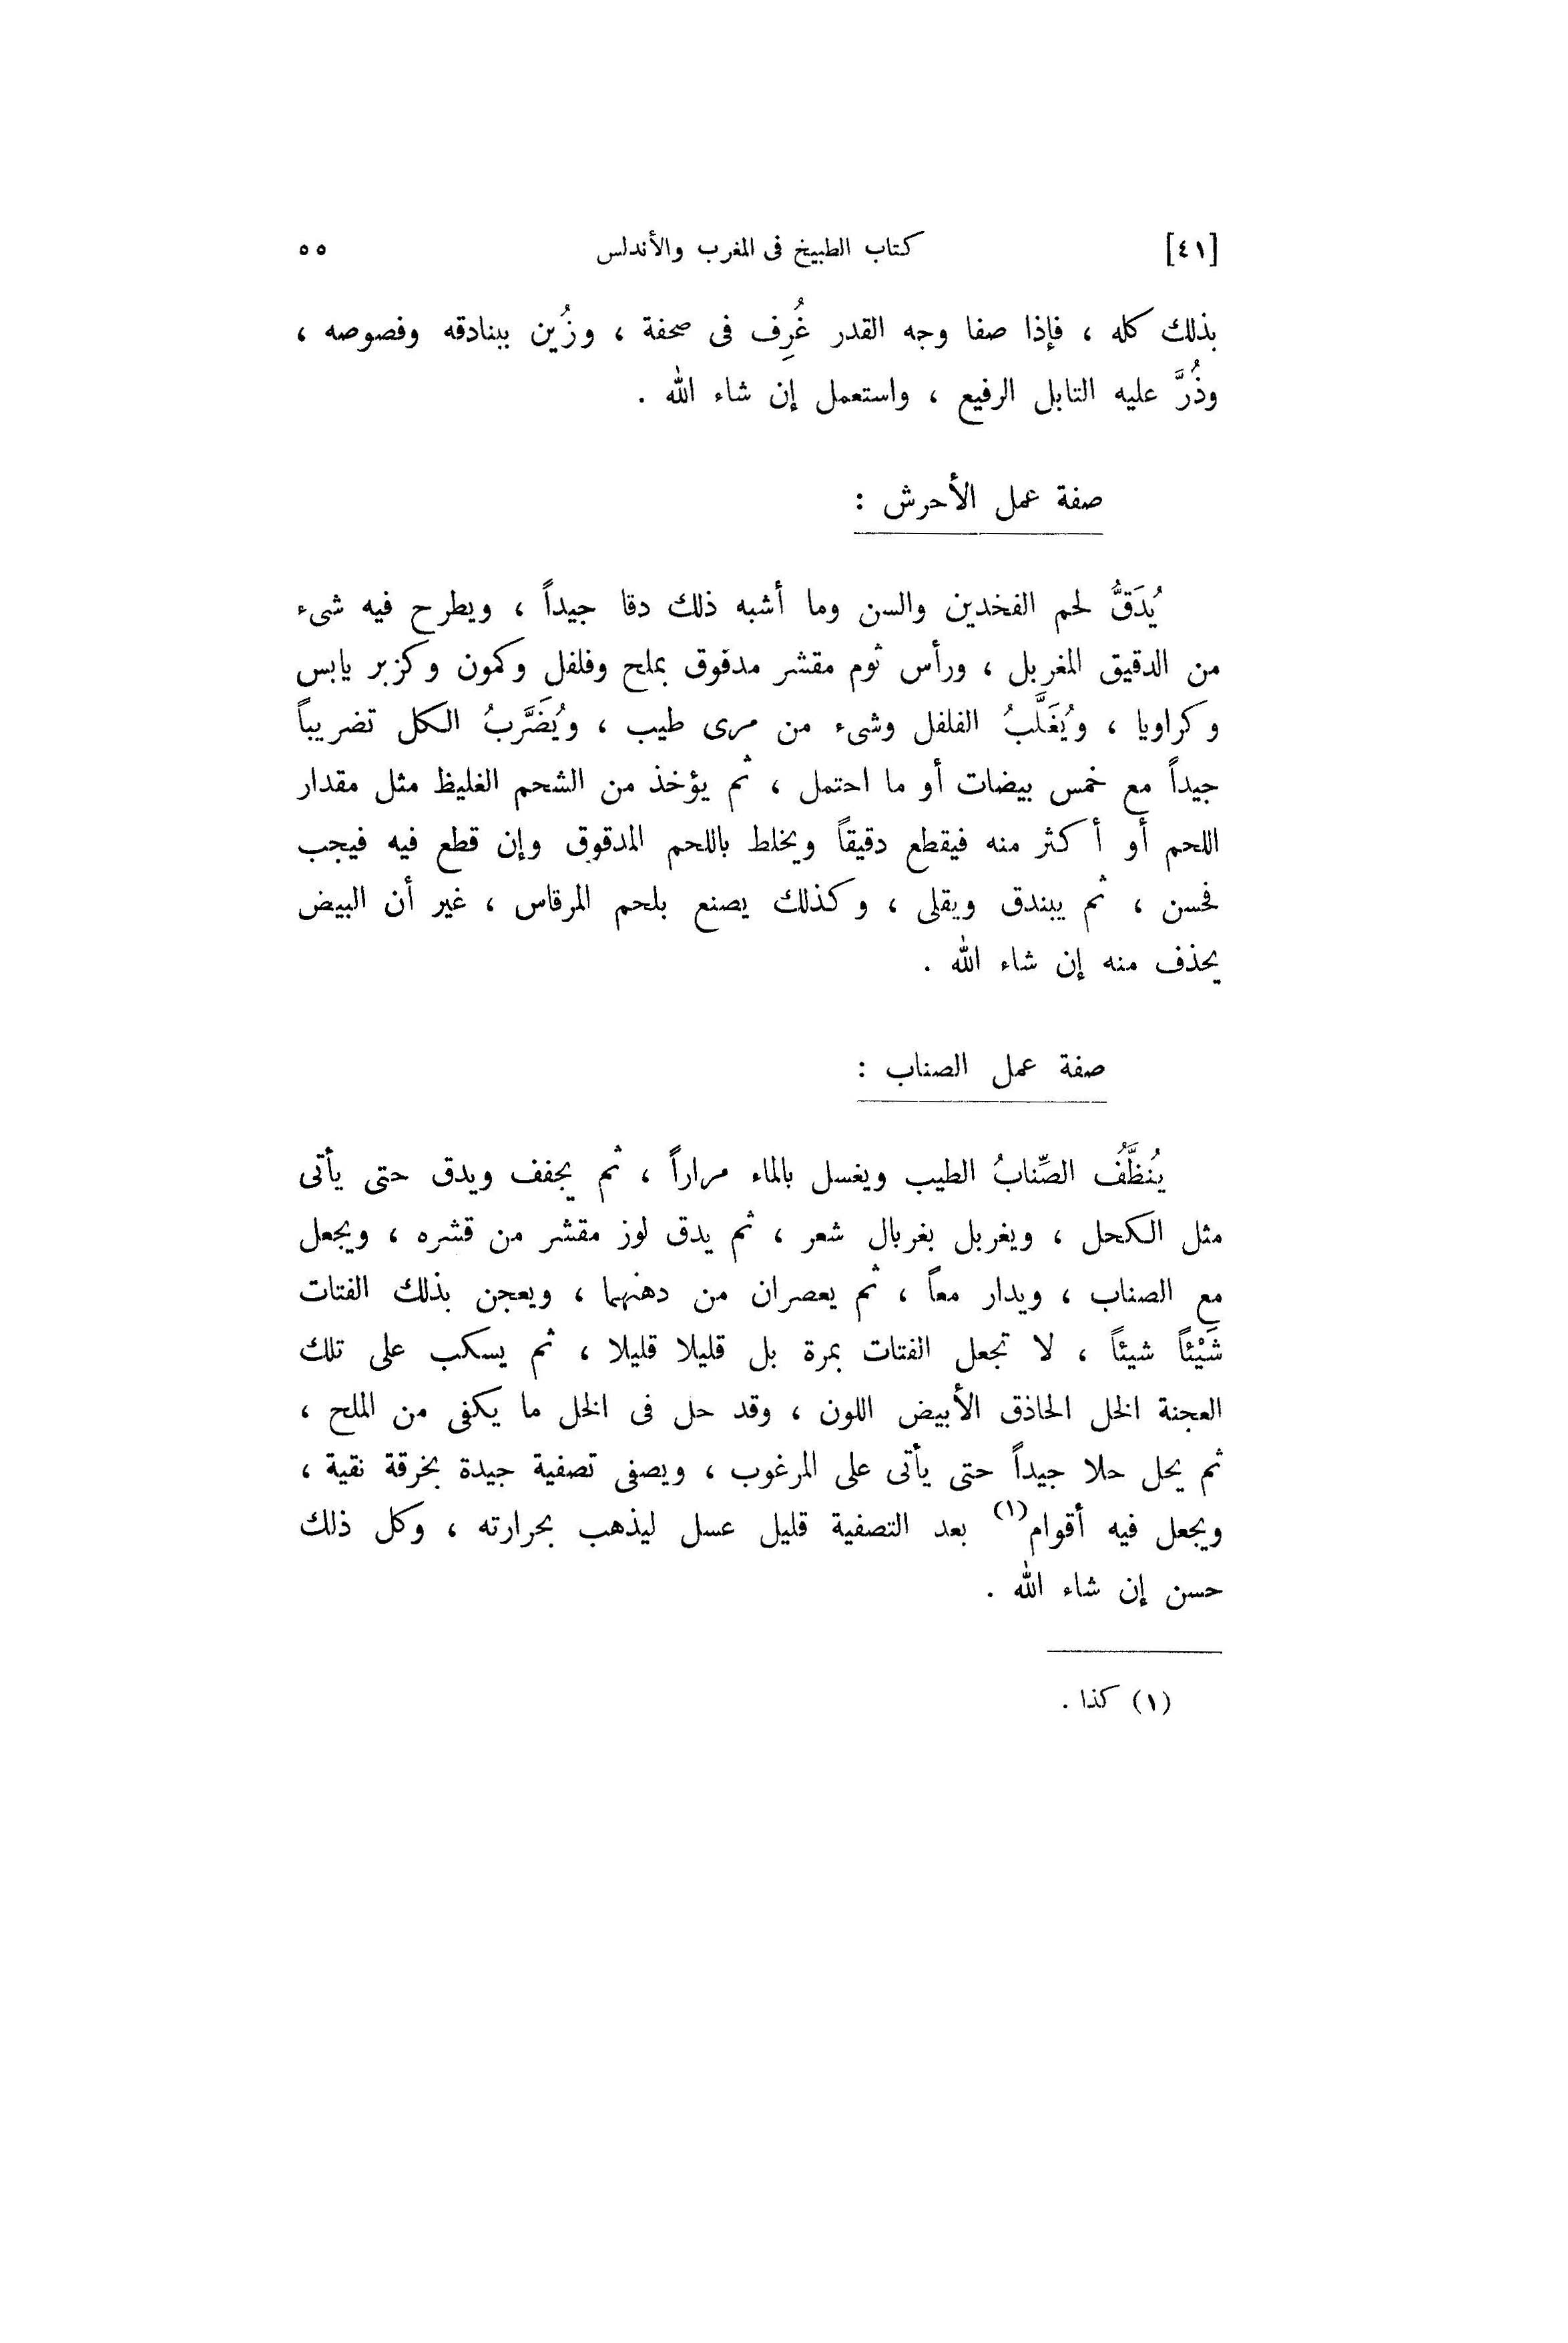 [٤١] كتاب الطبيخ فى المغرب والأندلس ٥٥
بذلك كله ، فإذا صفا وجه القدر غُرِف فى صحفة ، وزُين ببنادقه وفصوصه ،
وذُرَّ عليه التابل الرفيع ، واستعمل إن شاء الله .
صفة عمل الأحرش :
يُدَقُّ لحم الفخدين والسن وما أشبه ذلك دقا جيداً ، ويطرح فيه شىء
من الدقيق المغربل ، ورأس ثوم مقشر مدقوق بملح وفلفل وكمون وكزبر يابس
وكراويا ، ويُغَلَّبُ الفلفل وشىء من مرى طيب ، ويُضَرَّبُ الكل تضريباً
جيداً مع خمس بيضات أو ما احتمل ، ثم يؤخذ من الشحم الغليظ مثل مقدار
اللحم أو أكثر منه فيقطع دقيقاً ويخلط باللحم المدقوق وإن قطع فيه فيجب
فحسن ، ثم يبندق ويقلى ، وكذلك يصنع بلحم المرقاس ، غير أن البيض
يحذف منه إن شاء الله .
صفة عمل الصناب :
يُنظَّفُ الصِّنابُ الطيب ويغسل بالماء مراراً ، ثم يجفف ويدق حتى يأتى
مثل الكحل ، ويغربل بغربال شعر ، ثم يدق لوز مقشر من قشره ، ويجعل
مع الصناب ، ويدار معاً ، ثم يعصران من دهنهما ، ويعجن بذلك الفتات
شَيْئاً شيئاً ، لا تجعل الفتات بمرة بل قليلا قليلا ، ثم يسكب على تلك
العجنة الخل الحاذق الأبيض اللون ، وقد حل فى الخل ما يكفى من الملح ،
ثم يحل حلا جيداً حتى يأتى على المرغوب ، ويصفى تصفية جيدة بخرقة نقية ،
ويجعل فيه أقوام(١) بعد التصفية قليل عسل ليذهب بحرارته ، وكل ذلك
حسن إن شاء الله .
(١) كذا .